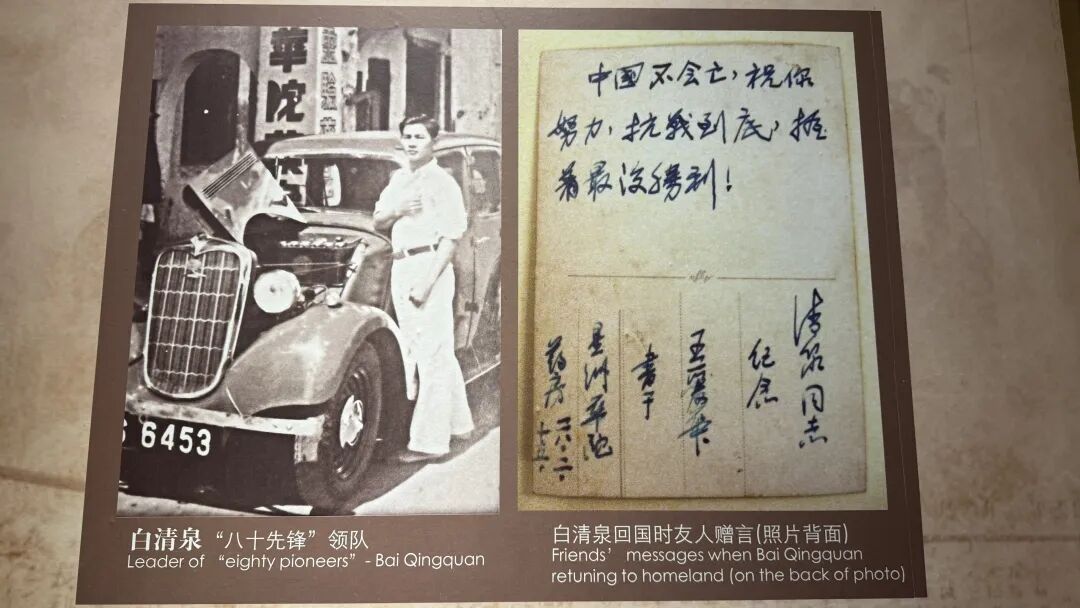 華陀
6453
中國不会亡,祝你
努力,抗戰到底,握
着最後勝利!
清泉同志
纪念
王
書于
星洲華陀
葯房
白清泉“八十先锋”领队
Leader of “eighty pioneers” - Bai Qingquan
白清泉回国时友人赠言(照片背面)
Friends’ messages when Bai Qingquan
retuning to homeland (on the back of photo)